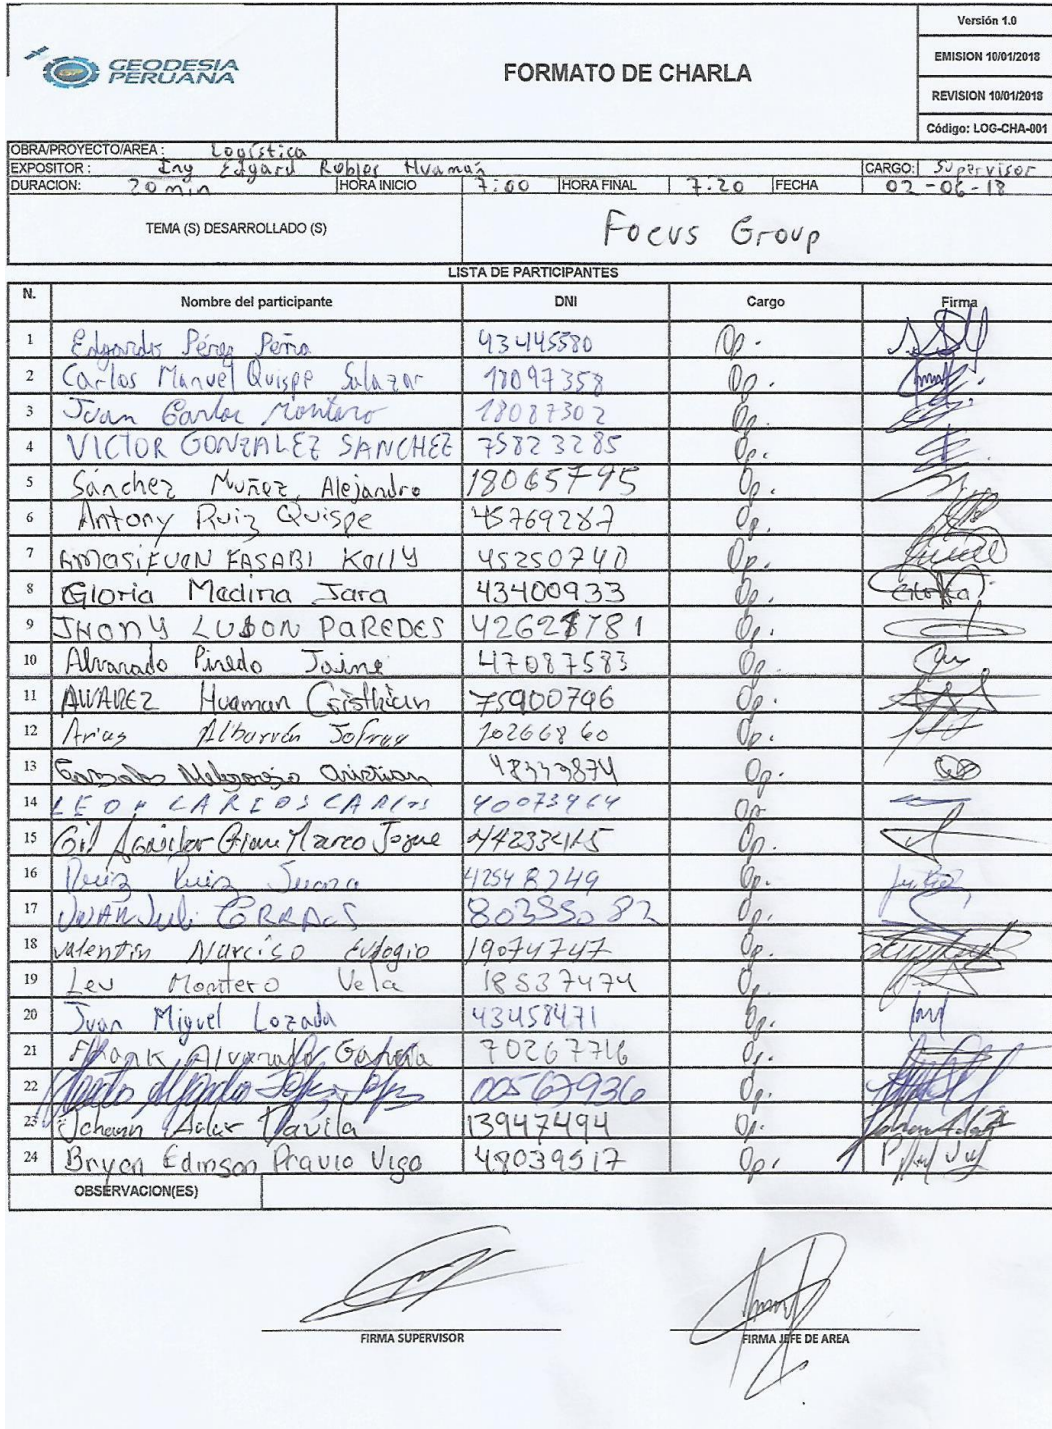 GEODESIA
PERUANA
FORMATO DE CHARLA
Versión 1.0
EMISION 10/01/2018
REVISION 10/01/2018
Código: LOG-CHA-001
OBRA/PROYECTO/AREA : Logística
EXPOSITOR : Ing Edgard Robles Huamañ CARGO: Supervisor
DURACION: 20 min HORA INICIO 7:00 HORA FINAL 7.20 FECHA 02-06-18
TEMA (S) DESARROLLADO (S) Focus Group
LISTA DE PARTICIPANTES
N. Nombre del participante DNI Cargo Firma
1 Pérez Peña 43445580 Op.
2 Carlos Manuel Quispe Salazar 18097358 Op.
3 Juan Carlos Montero 18087302 Op.
4 VICTOR GONZALEZ SANCHEZ 75823285 Op.
5 Sánchez Muñoz, Alejandro 18065795 Op.
6 Antony Ruiz Quispe 45769287 Op.
7 AMASIFUEN FASABI Kelly 45250740 Op.
8 Gloria Medina Jara 43400933 Op. Gloria
9 JHONY PAREDES Op.
10 Alvarado Pinedo Jaime 47087583 Op.
11 ALVAREZ Huaman Cristhian 75900796 Op.
12 Arias Albarrán 70266860 Op.
13 Op.
14 LEON CARLOS 40073964 Op
15 Gil Aguilar Marco Op.
16 Ruiz Ruiz Op.
17 JUAN 80355082 Op.
18 Valentin Narciso Eulogio 19074747 Op.
19 Leu Montero Vela 18537474 Op.
20 Juan Miguel Lozada 43458471 Op.
21 Frank Alvarado García 70267716 Op.
22 00567936 Op.
23 Johann Davila 13947494 Op.
24 Bryan Edinson Pravio Vigo 48039517 Op.
OBSERVACION(ES)
FIRMA SUPERVISOR FIRMA JEFE DE AREA